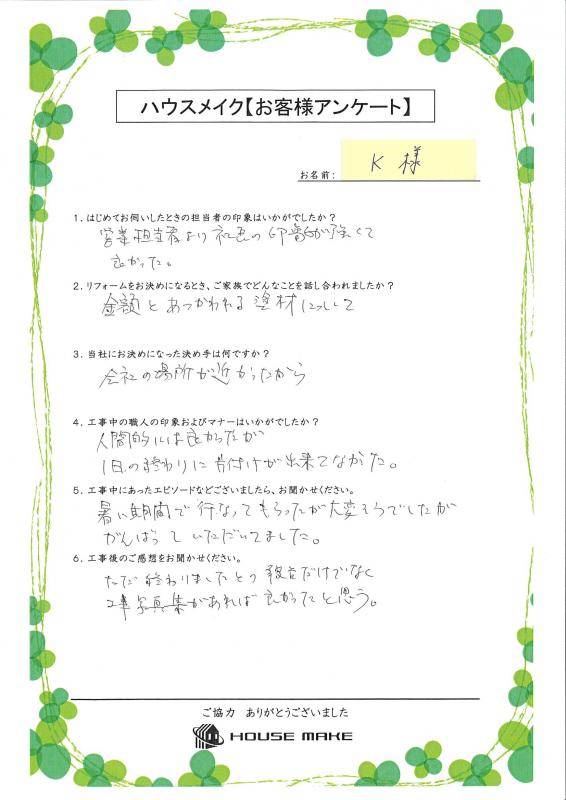 ハウスメイク【お客様アンケート】
お名前: K 様
1.はじめてお伺いしたときの担当者の印象はいかがでしたか?
営業担当者より 社長の印象が強くて
良かった。
2.リフォームをお決めになるとき、ご家族でどんなことを話し合われましたか?
金額とあつかわれる塗材について
3.当社にお決めになった決め手は何ですか?
会社の場所が近かったから
4.工事中の職人の印象およびマナーはいかがでしたか?
人間的には良かったが
1日の終わりに片付けが出来てなかた。
5.工事中にあったエピソードなどございましたら、お聞かせください。
暑い期間で行なってもらったが大変そうでしたが
がんばっていただいてました。
6.工事後のご感想をお聞かせください。
ただ終わりましたとの報告だけでなく
工事写真集があれば良かったと思う。
ご協力 ありがとうございました
HOUSE MAKE